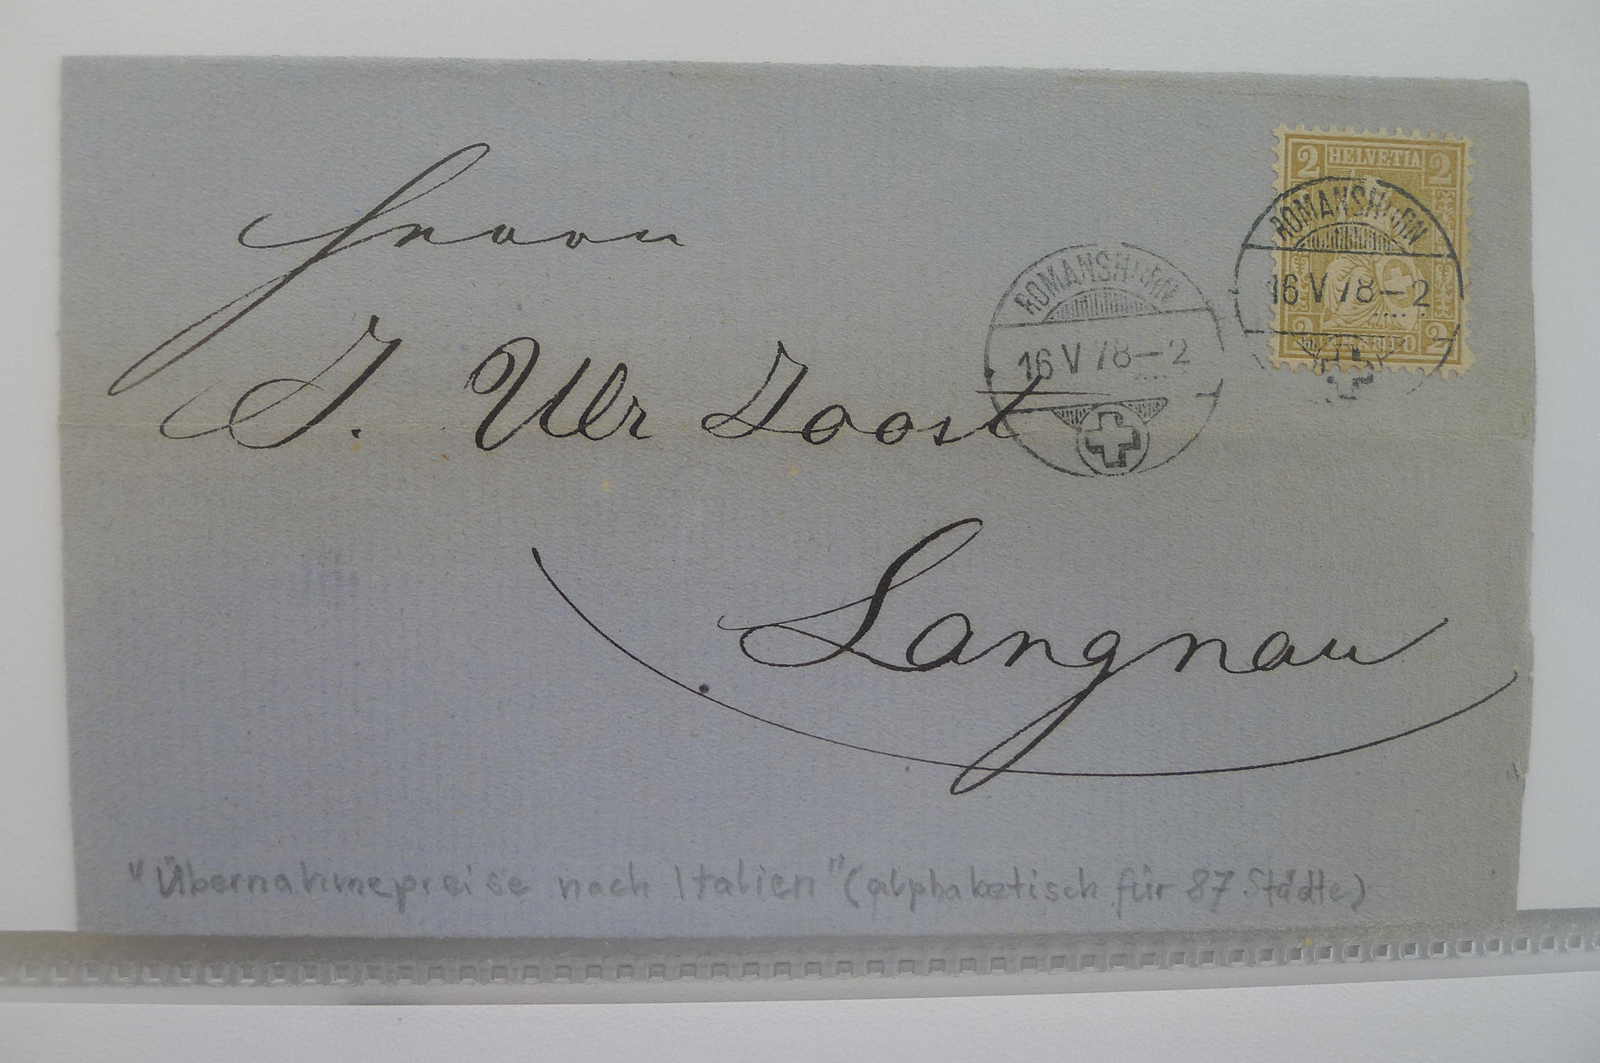 2 HELVETIA 2
ROMANSHORN
16 V 78 - 2
2 2
ROMANSHORN
16 V 78 - 2
Herrn
J. Ulr Joost
Langnau
"Übernahmepreise nach Italien" (alphabetisch für 87 Städte)